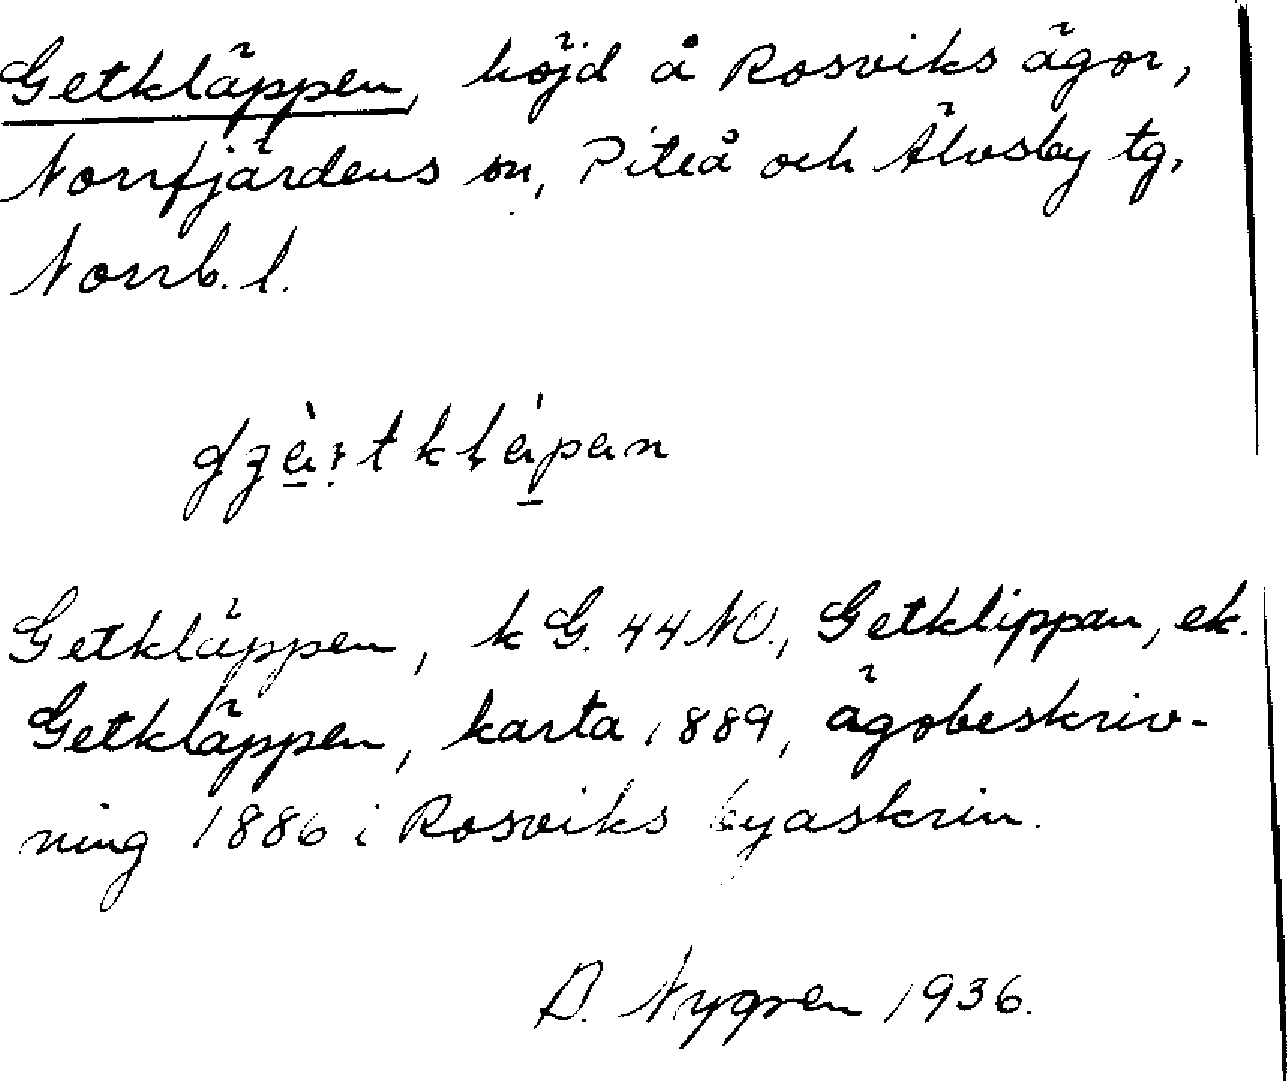 Getkläppen, höjd å Rosviks ägor,
Norrfjärdens sn, Piteå och Älvsby tg,
Norrb. l.
Getkläppen, k G. 44 NO., Getklippan, ek.
Getkläppen, karta 1889, ägobeskriv-
ning 1886 i Rosviks byaskrin.
D. Nygren 1936.